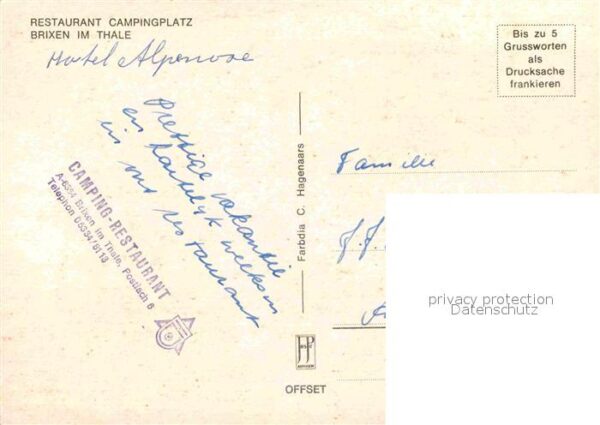 RESTAURANT CAMPINGPLATZ
BRIXEN IM THALE
Hotel Alpenrose
Bis zu 5
Grussworten
als
Drucksache
frankieren
Prettige vakantie
en hartelijk welkom
in ons restaurant
CAMPING-RESTAURANT
A-6364 Brixen im Thale, Postfach 6
Telephon 05334/8113
Farbdia C. Hagenaars
Familie
J. J.
privacy protection
Datenschutz
OFFSET